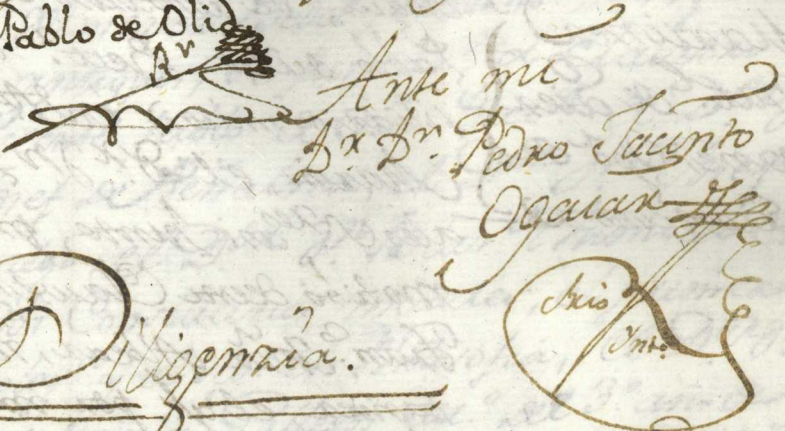 Pablo de Olid
Ante mi
Dr. Dn. Pedro Jacinto
Ogaiar
Srio
Intº
Diligenzia.